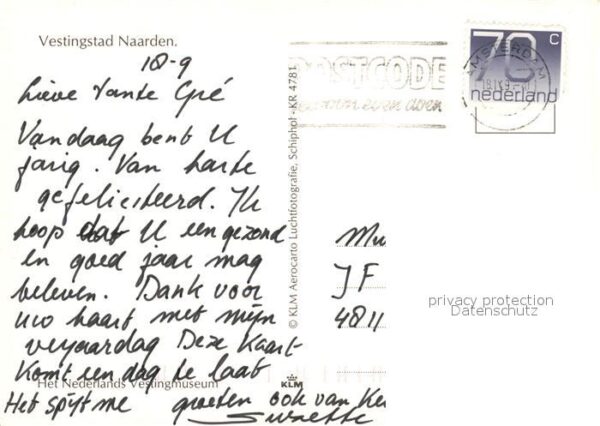 Vestingstad Naarden.
18-9
Lieve Tante
Vandaag bent U
jarig. Van harte
gefeliciteerd. Ik
hoop dat U een gezond
en goed jaar mag
beleven. Dank voor
uw kaart met mijn
verjaardag Deze Kaart
Komt een dag te laat
Het spijt me groeten ook van
Het Nederlands Vestingmuseum
© KLM Aerocarto Luchtfotografie, Schiphol-KR 4781
KLM
POSTCODE
gewoon even doen
AMSTERDAM
70 c
nederland
JF
4811
privacy protection
Datenschutz